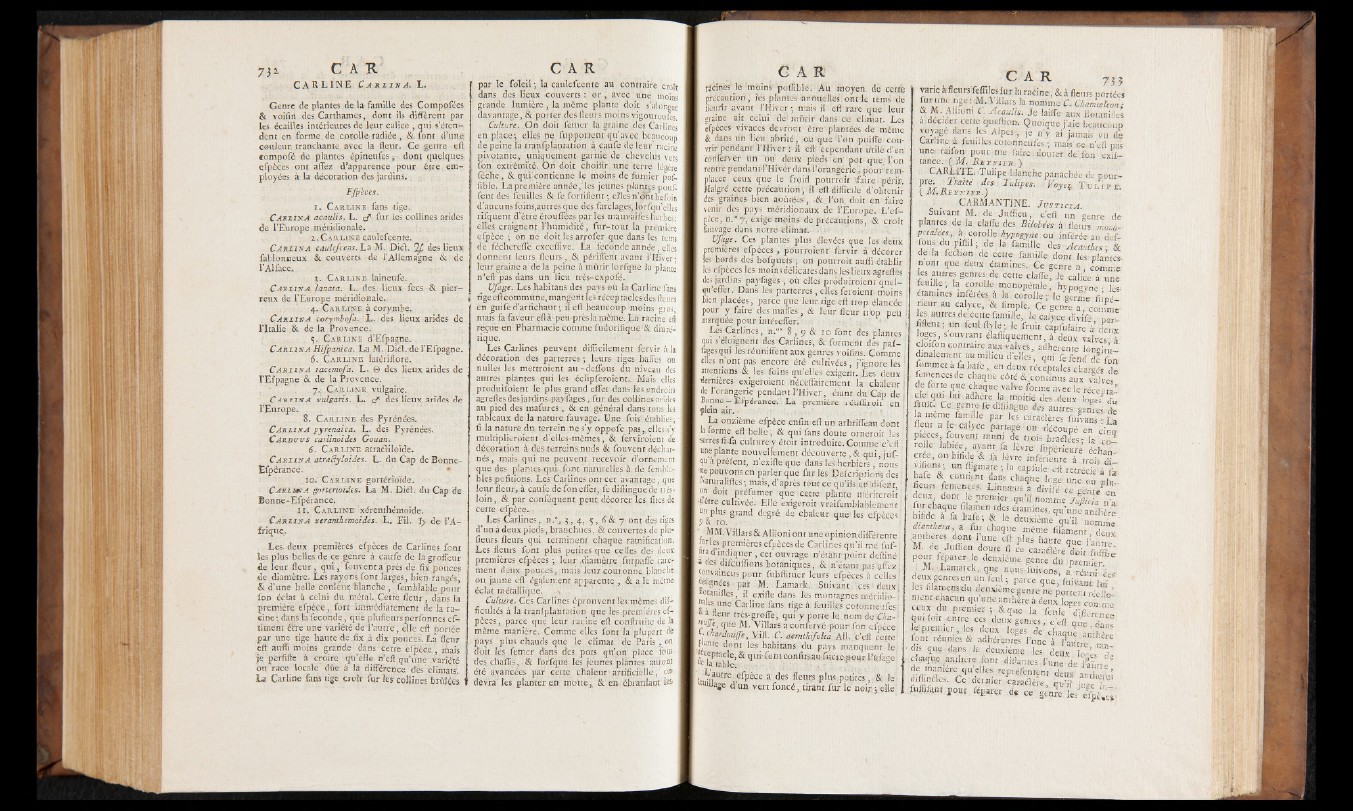 732 C A R
CARLINE CARLINA. L.
Genre de plantes de la famille des Compofées
& voifin des Carthames, dont ils diffèrent par
les écailles intérieures de leur calice, qui s'éten-
dent en forme de corolle radiée, & font d'une
couleur tranchante avec la fleur. Ce genre eft
compofé de plantes épineufes, dont quelques
efpèces ont affez d'apparence pour être em-
ployées à la décoration des jardins.
Efpèces.
1. CARLINE fans tige.
CARLINA acaulis. L. ♂ fur les collines arides
de l'Europe méridionale.
2. CARLINE caulefcente.
CARLINA caulefcens. La M. Dict. ♃ des lieux
fablonneux & couverts de l'Allemagne & de
l'Alface.
3. CARLINE laineufe.
CARLINA lanata. L. des lieux fecs & pier-
reux de l'Europe méridionale.
4. CARLINE à corymbe.
CARLINA corymbofa. L. des lieux arides de
l'Italie & de la Provence.
5. CARLINE d'Efpagne.
CARLINA Hifpanica. La M. Dict. de l'Efpagne.
6. CARLINE latériflore.
CARLINA racemofa. L. ☉ des lieux arides de
l'Efpagne & de la Provence.
7. CARLINE vulgaire.
CARLINA vulgaris. L. ♂ des lieux arides de
l'Europe.
8. CARLINE des Pyrénées.
CARLINA pyrenaica. L. des Pyrénées.
CARDUUS carlinoides Gouan.
6. CARLINE atractiloïde.
CARLINA atractyloides. L. du Cap de Bonne-
Efpérance.
10. CARLINE gortérioïde.
CARLINA gorterioides. La M. Dict. du Cap de
Bonne-Efpérance.
11. CARLINE xérenthémoïde.
CARLINA xeranthemoides. L. Fil. ♄ de l'A-
frique.
Les deux premières efpèces de Carlines font
les plus belles de ce genre à caufe de la groffeur
de leur fleur, qui, fouvent a près de fix pouces
de diamètre. Les rayons font larges, bien rangés,
& d'une belle couleur blanche, femblable pour
fon éclat à celui du métal. Cette fleur, dans la
première efpèce, fort immédiatement de la ra-
cine; dans la feconde, que plufieurs perfonnes ef-
timent être une variété de l'autre, elle eft portée
par une tige haute de fix à dix pouces. La fleur
eft auffi moins grande dans cette efpèce, mais
je perfifte à croire qu'elle n'eft qu'une variété
on race locale dûe à la différence des climats.
La Carline fans tige croît fur les collines brûlées
C A R
par le foleil; la caulefcente au contraire croît
dans des lieux couverts: or, avec une moins
grande lumière, la même plante doit s'alonger
davantage, & porter des fleurs moins vigoureufes.
Culture. On doit femer la graine des Carlines
en place; elles ne fupportent qu'avec beaucoup
de peine la tranfplantation à caufe de leur racine
pivotante, uniquement garnie de chevelus vers
fon extrémité. On doit choifir une terre légère
fèche, & qui contienne le moins de fumier pof-
fible. La première année, les jeunes plantes pouf-
fent des feuilles & fe fortifient; elles n'ont befoin
d'aucuns foins, autres que des farclages, lorfqu'elles
rifquent d'être étouffées par les mauvaifes herbes:
elles craignent l'humidité, fur-tout la première
efpèce; on ne doit les arrofer que dans les tems
de féchereffe exceffive. La feconde année, elles
donnent leurs fleurs, & périffent avant l'Hiver;
leur graine a de la peine à mûrir lorfque la plante
n'eft pas dans un lieu très-expofé.
Ufage. Les habitans des pays où la Carline fans
tige eft commune, mangent les réceptacles des fleurs
en guife d'artichaut; il eft beaucoup moins gros,
mais fa faveur eft à-peu-près la même. La racine eft
reçue en Pharmacie comme fudorifique & diuré-
tique.
Les Carlines peuvent difficilement fervir à la
décoration des parterres; leurs tiges baffes ou
nulles les mettroient au-deffous du niveau des
autres plantes qui les éclipferoient. Mais elles
produifoient le plus grand effet dans les endroits
agreftes des jardins-payfages, fur des collines arides
au pied des mafures, & en général dans tous les
tableaux de la nature fauvage. Une fois établies,
fi la nature du terrein ne s'y oppofe pas, elles s'y
multiplieroient d'elles-mêmes, & ferviroient de
décoration à des terreins nuds & fouvent déchar-
nés, mais qui ne peuvent recevoir d'ornement
que des plantes qui font naturelles à de fembla-
bles pofitions. Les Carlines ont cet avantage, que
leur fleur, à caufe de fon effet, fe diftingue de très-
loin, & par conféquent peut décorer les fites de
cette efpèce.
Les Carlines, n.ᵒˢ, 3, 4, 5, 6 & 7 ont des tiges
d'un à deux pieds, branchues, & couvertes de plu-
fieurs fleurs qui terminent chaque ramification.
Les fleurs font plus petites que celles des deux
premières efpèces; leur diamètre furpaffe rare-
ment deux pouces, mais leur couronne blanche
ou jaune eft également apparente, & a le même
éclat métallique.
Culture. Ces Carlines éprouvent les mêmes dif-
ficultés à la tranfplantation que les premières ef-
pèces, parce que leur racine eft conftruite de la
même manière. Comme elles font la plupart de
pays plus chauds que le climat de Paris, on
doit les femer dans des pots qu'on place fous
des chaffis, & lorfque les jeunes plantes auront
été avancées par cette chaleur artificielle, on
devra les planter en motte, & en ébranlant les
C A R
racines le moins poffible. Au moyen de cette
précaution, les plantes annuelles ont le tems de
fleurir avant l'Hiver; mais il eft rare que leur
graine ait celui de mûrir dans ce climat. Les
efpèces vivaces devront être plantées de même
& dans un lieu abrité, ou que l'on puiffe cou-
vrir pendant l'Hiver: il eft cependant utile d'en
conferver un ou deux pieds en pot que l'on
rentre pendant l'Hiver dans l'orangerie, pour rem-
placer ceux que le froid pourroit faire périr.
Malgré cette précaution, il eft difficile d'obtenir
des graines bien aoûtées, & l'on doit en faire
venir des pays méridionaux de l'Europe. L'ef-
pèce, n.° 7, exige moins de précautions, & croît
fauvage dans notre climat.
Ufage. Ces plantes plus élevées que les deux
premières efpèces, pourroient fervir à décorer
les bords des bofquets; on pourroit auffi établir
les efpèces les moins délicates dans les lieux agreftes
des jardins payfages, où elles produiroient quel-
qu'effet. Dans les parterres, elles feroient moins
bien placées, parce que leur tige eft trop élancée
pour y faire des maffes, & leur fleur trop peu
marquée pour intéreffer.
Les Carlines, n.ᵒˢ 8, 9 & 10 font des plantes
qui s'éloignent des Carlines, & forment des paf-
fages qui les réuniffent aux genres voifins. Comme
elles n'ont pas encore été cultivées, j'ignore les
mentions & les foins qu'elles exigent. Les deux
dernières exigeroient néceffairement la chaleur
de l'orangerie pendant l'Hiver, étant du Cap de
Bonne-Efpérance. La première réuffiroit en
plein air.
La onzième efpèce enfin eft un arbriffeau dont
la forme eft belle, & qui fans doute orneroit les
ferres fi fa culture y étoit introduite. Comme c'eft
une plante nouvellement découverte, & qui, juf-
qu'à préfent, n'exifte que dans les herbiers, nous
ne pouvons en parler que fur les Defcriptions des
Naturaliftes; mais, d'après tout ce qu'ils en difent,
on doit préfumer que cette plante mériteroit
d'être cultivée. Elle exigeroit vraifemblablement
un plus grand degré de chaleur que les efpèces
9 & 10.
MM. Villars & Allioni ont une opinion différente
fur les premières efpèces de Carlines qu'il me fuf-
fira d'indiquer, cet ouvrage n'étant point deftiné
à des difcuffions botaniques, & n'étant pas affez
convaincus pour fubftituer leurs efpèces à celles
défignées par M. Lamark. Suivant ces deux
Botaniftes, il exifte dans les montagnes méridio-
nales une Carline fans tige à feuilles cotonneufes
& à fleur très-groffe, qui y porte le nom de Cha-
rouffe, que M. Villars a confervé pour fon efpèce
C. chardouffe, Vill. C. acanthifolia All. c'eft cette
plante dont les habitans du pays mangent le
réceptacle, & qui font confits au fucre pour l'ufage
de la table.
L'autre efpèce a des fleurs plus petites, & le
feuillage d'un vert foncé, tirant fur le noir; elle
C A R 733
varie à fleurs feffiles fur la racine, & à fleurs portées
fur une tige: M. Villars la nomme C. Chamæleon;
& M. Allioni C. Acaulis. Je laiffe aux Botaniftes
à décider cette queftion. Quoique j'aie beaucoup
voyagé dans les Alpes, je n'y ai jamais vu de
Carline à feuilles cotonneufes; mais ce n'eft pas
une raifon pour me faire douter de fon exif-
tance. (M. REYNIER.)
CARLITE. Tulipe blanche panachée de pour-
pre. Traité des Tulipes. Voyez TULIPE.
(M. REYNIER.)
CARMANTINE. JUSTICIA.
Suivant M. de Juffieu, c'eft un genre de
plantes de la claffe des Dilobées à fleurs mono-
pétalées, à corolle hypogyne ou inférée au def-
fous du piftil; de la famille des Acanthes; &
de la fection de cette famille dont les plantes
n'ont que deux étamines. Ce genre a, comme
les autres genres de cette claffe, le calice à une
feuille; la corolle monopétale, hypogyne; les
étamines inférées à la corolle; le germe fupé-
rieur au calyce, & fimple. Ce genre a, comme
les autres de cette famille, le calyce divifé, per-
fiftent; un feul ftyle; le fruit capfulaire à deux
loges, s'ouvrant élaftiquement, à deux valves, à
cloifon contraire aux valves, adhérente longitu-
dinalement au milieu d'elles, qui fe fend de fon
fommet à fa bafe, en deux réceptacles chargés de
femences de chaque côté & continus aux valves,
de forte que chaque valve forme avec le récepta-
cle qui lui adhère la moitié des deux loges du
fruit. Ce genre fe diftingue des autres genres de
la même famille par les caractères fuivans: La
fleur a le calyce partagé ou découpé en cinq
pièces, fouvent muni de trois bractées; la co-
rolle labiée, ayant fa lèvre fupérieure échan-
crée, ou bifide & fa lèvre inférieure à trois di-
vifions; un ftigmate; la capfule eft rétrécie à fa
bafe & contient dans chaque loge une ou plu-
fieurs femences. Linnæus a divifé ce genre en
deux, dont le premier qu'il nomme Jufticia n'a
fur chaque filament (des étamines) qu'une anthère
bifide à fa bafe; & le deuxième qu'il nomme
dianthera, a fur chaque même filament, deux
anthères dont l'une eft plus haute que l'autre.
M. de Juffieu doute fi ce caractère doit fuffire
pour féparer le deuxième genre du premier.
M. Lamarck, que nous fuivons, a réuni ces
deux genres en un feul; parce que, fuivant lui,
les filamens du deuxième genre ne portent réelle-
ment chacun qu'une anthère à deux loges comme
ceux du premier; & que la feule différence
qui foit entre ces deux genres, c'eft que, dans
le premier, les deux loges de chaque anthère
font réunies & adhérentes l'une à l'autre, tan-
dis que dans le deuxième les deux loges de
chaque anthère font diftantes l'une de l'autre,
de manière qu'elles repréfentent deux anthères
diftinctes. Ce dernier caractère, qu'il juge in-
fuffifant pour féparer de ce genre les efpèces